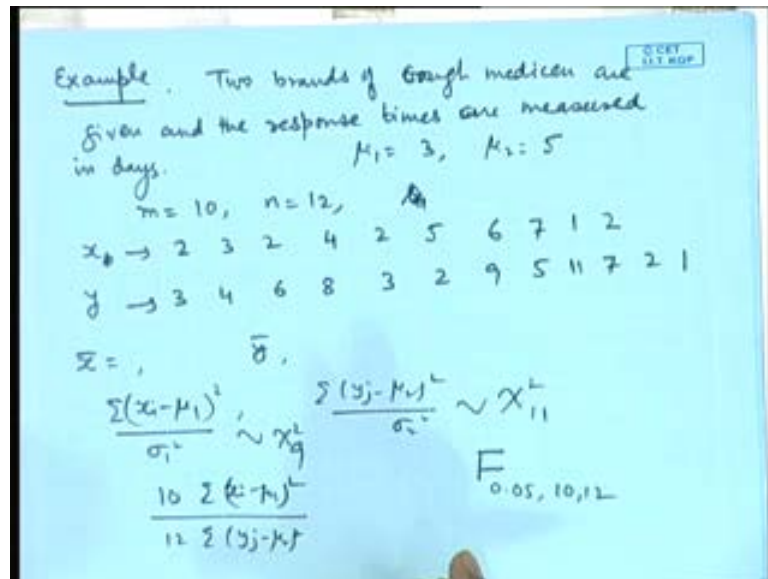 © CET
I.I.T. KGP
Example. Two brands of Cough medicen are
given and the response times are measured
in days. μ₁ = 3, μ₂ = 5
m = 10, n = 12,
x → 2 3 2 4 2 5 6 7 1 2
y → 3 4 6 8 3 2 9 5 11 7 2 1
x̄ = , ȳ ,
Σ(xi-μ₁)²/σ₁² ~ χ²₉ , Σ(yj-μ₂)²/σ₂² ~ χ²₁₁
10 Σ(xi-μ₁)² / 12 Σ(yj-μ₂)² F 0.05, 10, 12